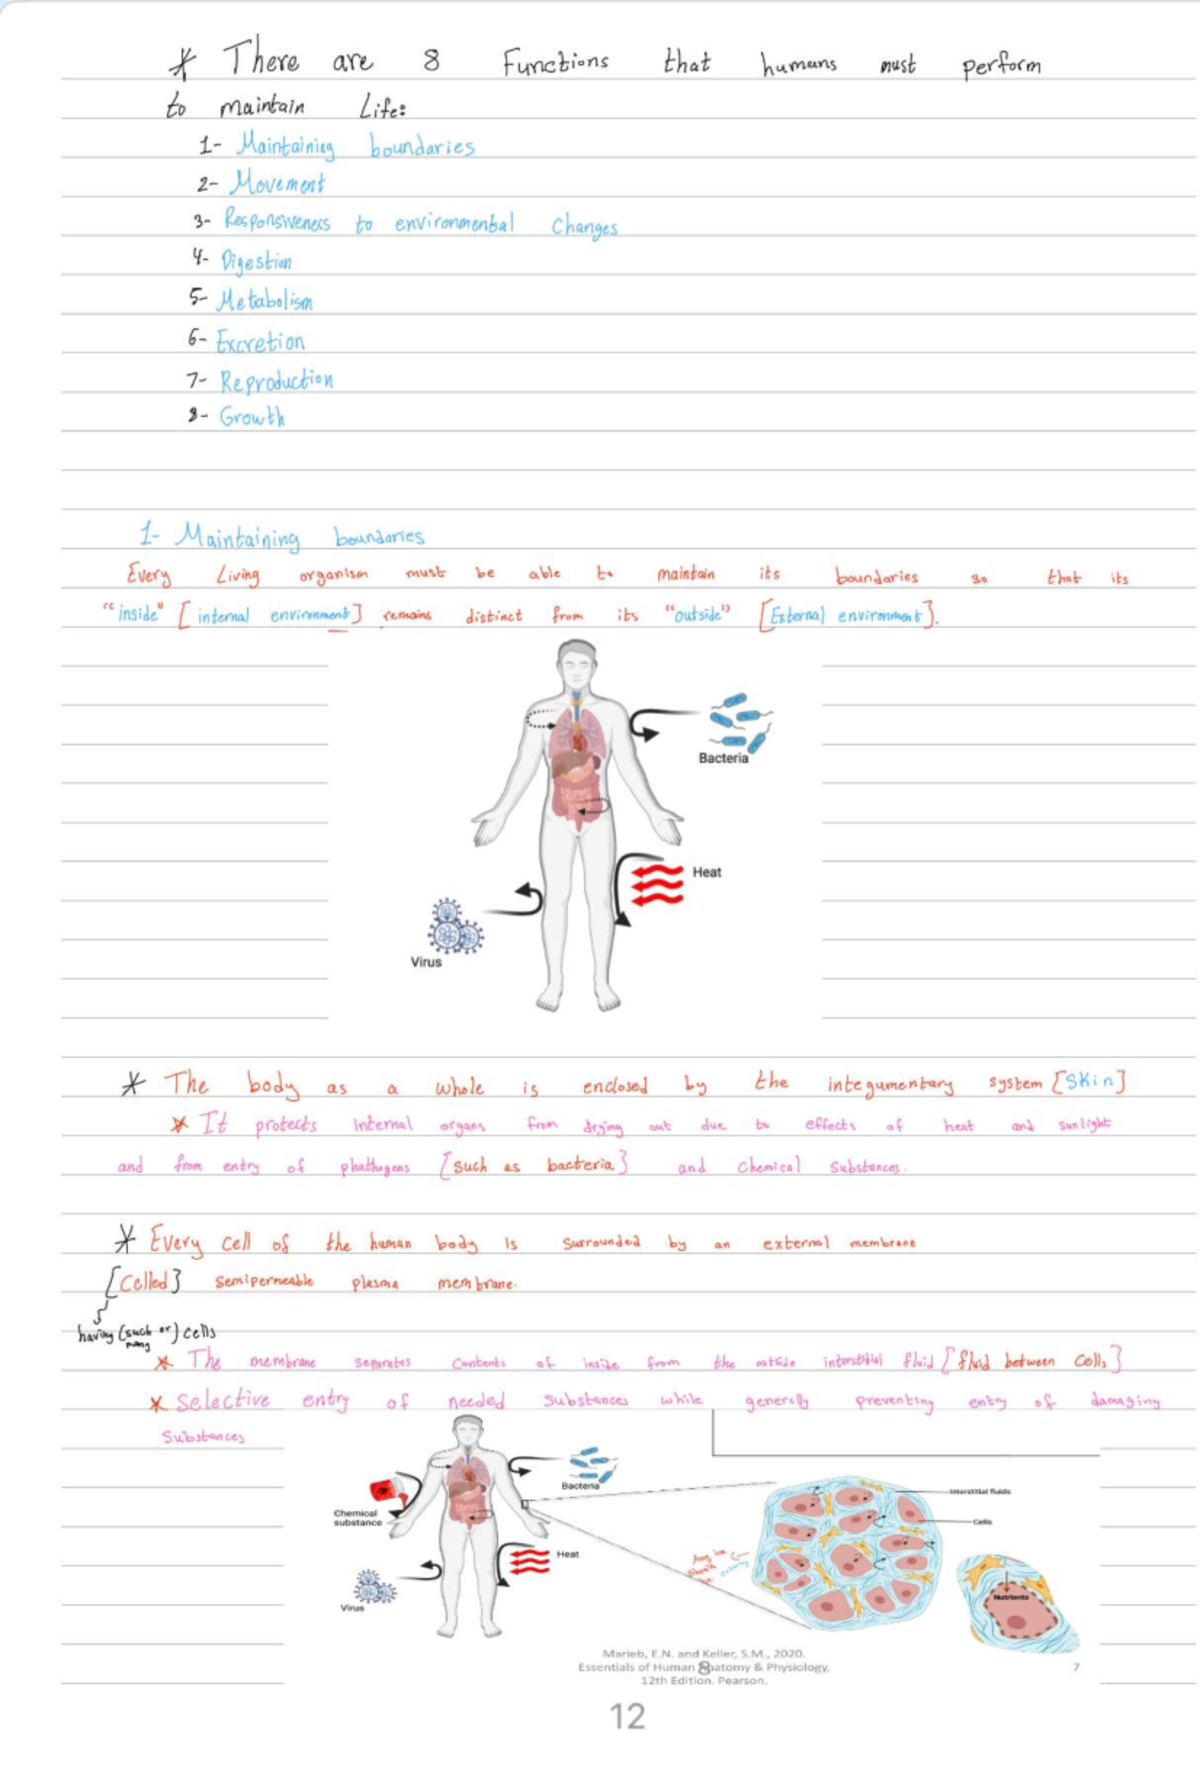 * There are 8 Functions that humans must perform
to maintain Life:
1- Maintaining boundaries
2- Movement
3- Responsiveness to environmental Changes
4- Digestion
5- Metabolism
6- Excretion
7- Reproduction
8- Growth
1- Maintaining boundaries
Every Living organism must be able to maintain its boundaries so that its
"inside" [internal environment] remains distinct from its "outside" [External environment].
Bacteria
Heat
Virus
* The body as a whole is enclosed by the integumentary system [Skin]
* It protects internal organs from drying out due to effects of heat and sunlight
and from entry of phathogens [such as bacteria] and Chemical Substances.
* Every cell of the human body is surrounded by an external membrane
[Celled] semipermeable plasma membrane.
having (such or many) cells
* The membrane separates Contents of inside from the outside interstitial fluid [fluid between Cells]
* Selective entry of needed Substances while generally preventing entry of damaging
Substances
Bacteria
Chemical
substance
Heat
Virus
Interstitial fluids
Cells
Nutrients
Marieb, E.N. and Keller, S.M., 2020.
Essentials of Human Anatomy & Physiology,
12th Edition. Pearson.
8
7
12